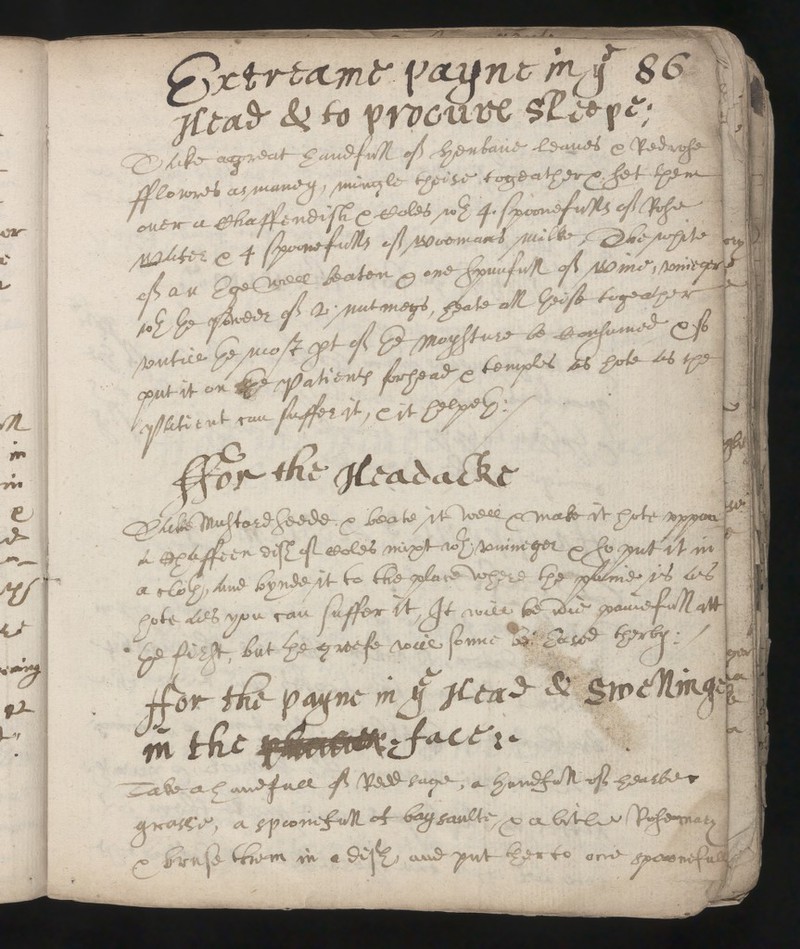 Extreame payne in yͤ 86
Head & to procure sleepe;
Take a great handfull of Henbane leaues & Redrose
fflowres as maney, mingle theise togeather & set them
ouer a Chaffendish & Coles wth 4 spoonefulls of Rose
Water & 4 spoonefulls of woemans milke, The white
of an Ege well beaten & one spunfull of wine, vineger
wth the powder of 2 nutmegs, heate all theise togeather
vntill the most pt of the moysture be Consumed & so
put it on the Patients forhead & temples as hote as the
Patient can suffer it, & it helpeth:
ffor the Headacke
Take Mustardseede & beate it well & make it hote vppon
a Chaffeen dish of Coles mixt wth vinieger & so put it in
a cloth, and bynde it to the place where the paine is as
hote as you can suffer it, It will be painefull att
the first, but the greefe will soone be Eased therby:
ffor the payne in yͤ Head & Swellinge
in the face:.
Take a handfull of Redd sage, a handfull of hearbe
grasse, a spoonefull of baysaulte, & a litle Rosemary
& bruse them in a dish, and put therto one spoonefull